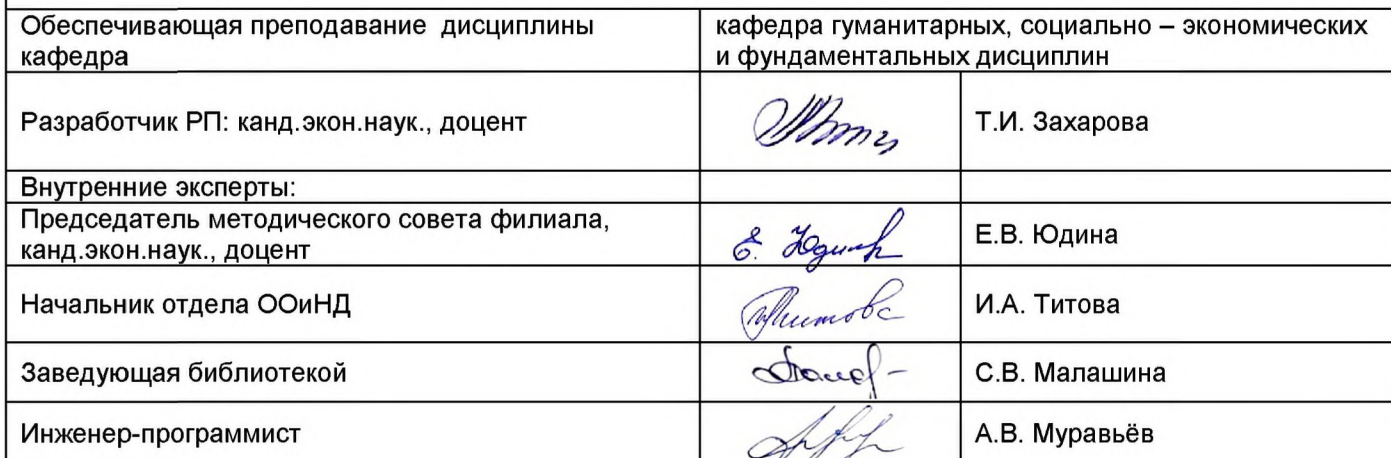 Обеспечивающая преподавание дисциплины
кафедра
кафедра гуманитарных, социально – экономических
и фундаментальных дисциплин
Разработчик РП: канд.экон.наук., доцент
Т.И. Захарова
Внутренние эксперты:
Председатель методического совета филиала,
канд.экон.наук., доцент
Е. Юдина
Е.В. Юдина
Начальник отдела ООиНД
И.А. Титова
Заведующая библиотекой
С.В. Малашина
Инженер-программист
А.В. Муравьёв